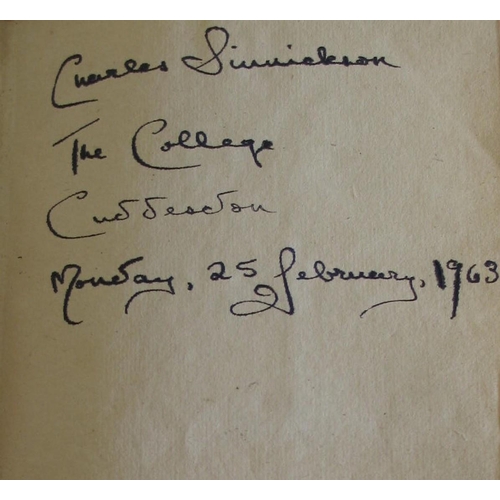 Charles Sinnickson
The College
Cuddesdon
Monday, 25 February, 1963